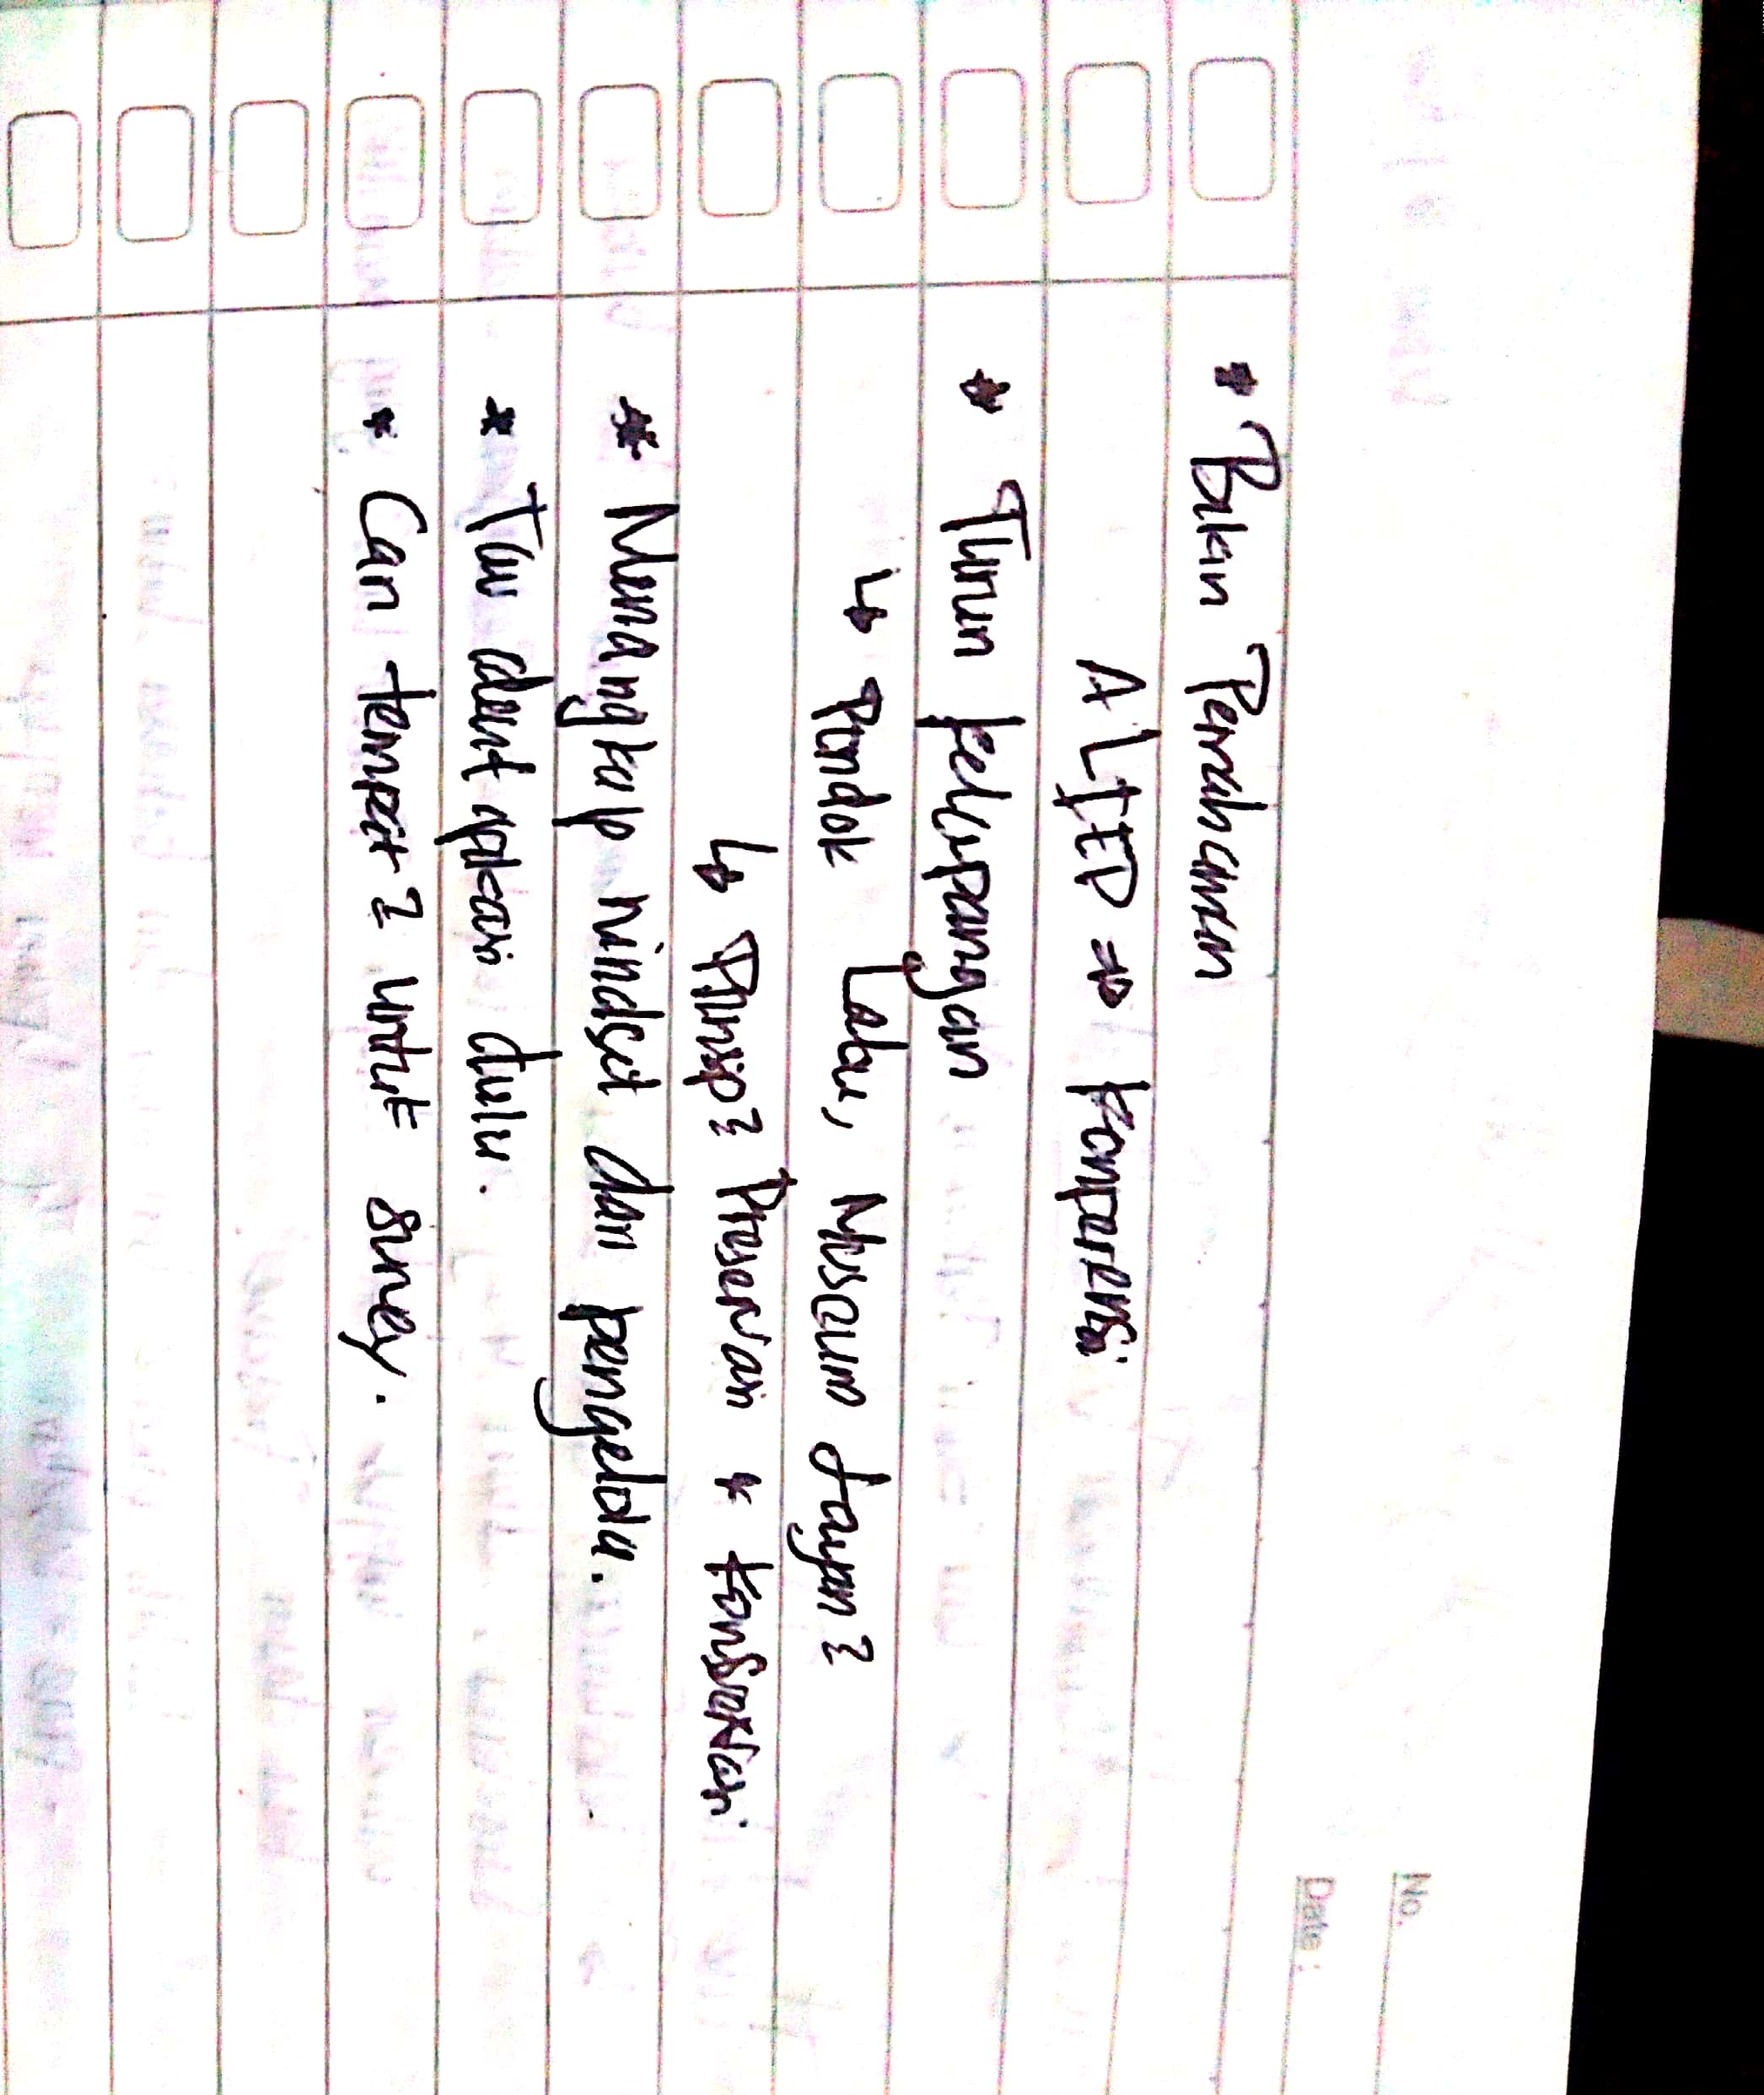 No.
Date :
* Bikin Perubahan
ALIEP → Konperensi
* Turun kelapangan
↳ Pondok Labu, Museum Jayan?
↳ Prinsip2 Preservasi & Konservasi
* Menangkap mindset dari pengelola.
* Tau identifikasi dulu.
* Cari tempat2 untuk survey.